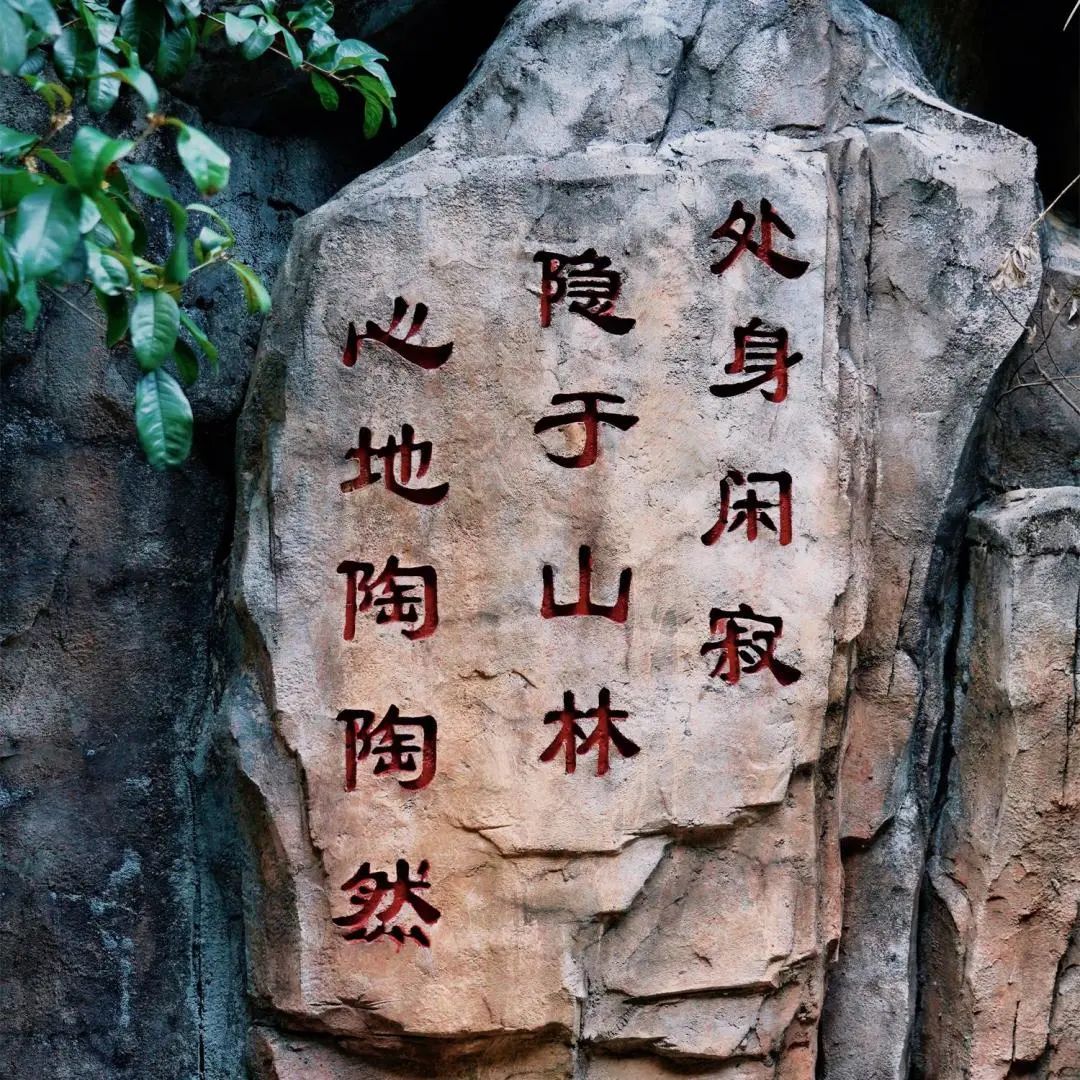 处身闲寂
隐于山林
心地陶陶然